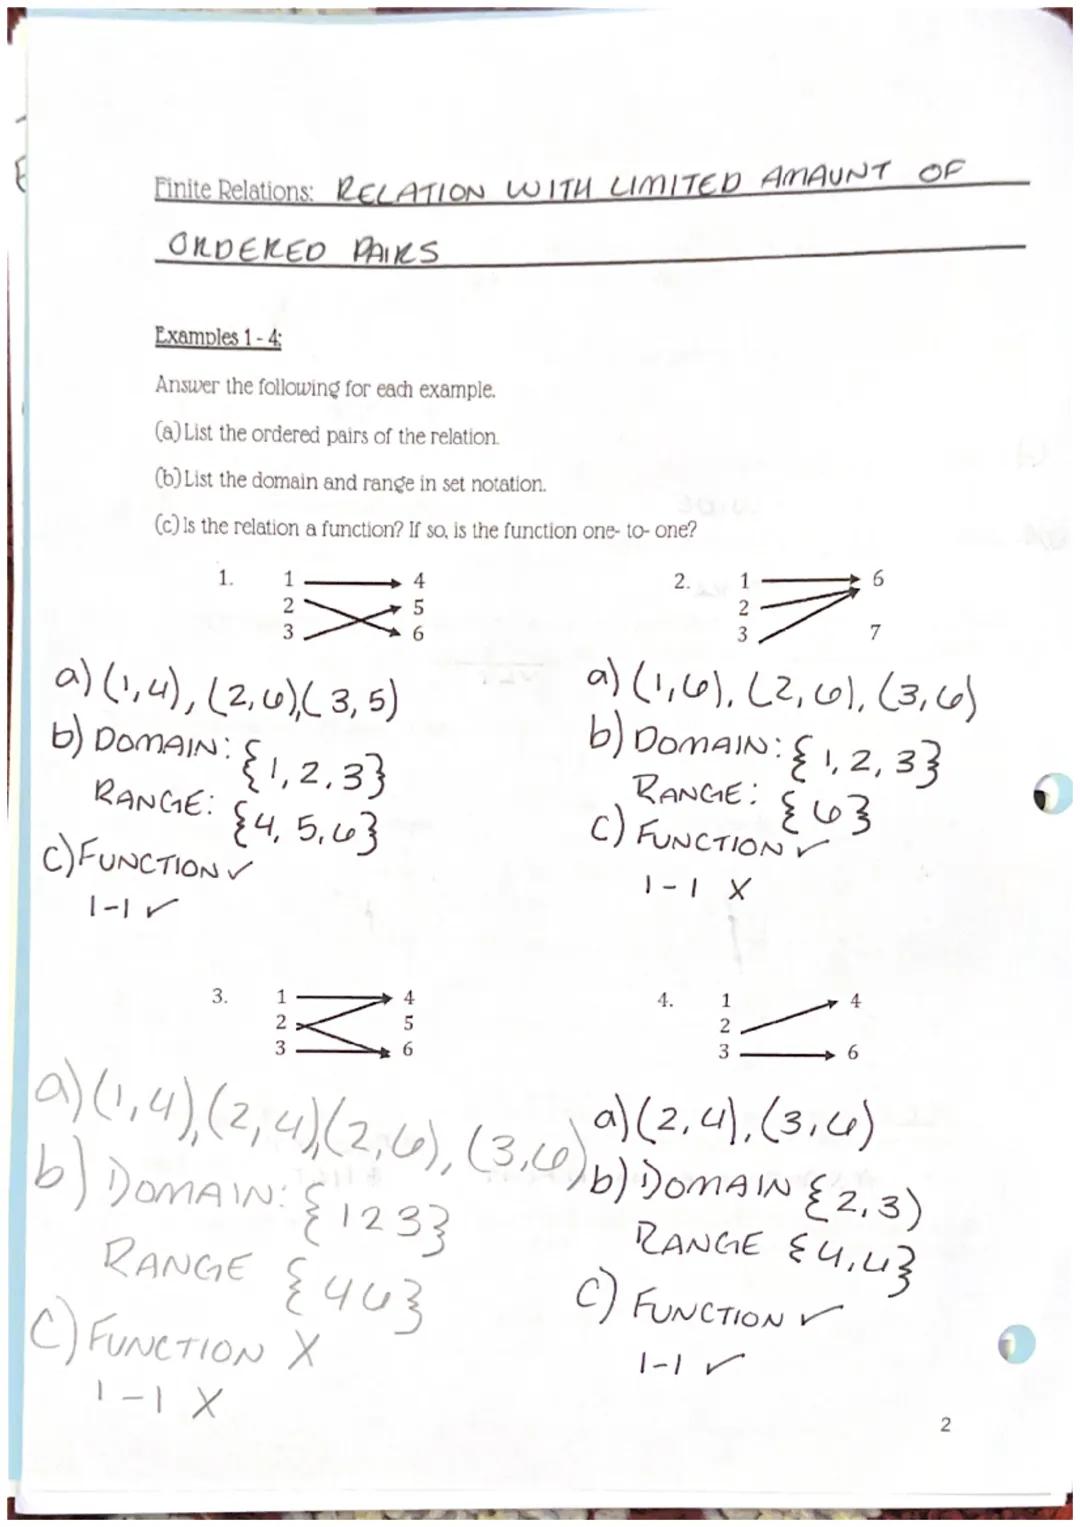 Finite Relations: RELATION WITH LIMITED AMAUNT OF
ORDERED PAIRS
Examples 1 - 4:
Answer the following for each example.
(a) List the ordered pairs of the relation.
(b) List the domain and range in set notation.
(c) Is the relation a function? If so, is the function one- to- one?
1. 1 4
2 5
3 6
a) (1,4), (2,6),(3,5)
b) DOMAIN: {1,2,3}
RANGE: {4,5,6}
c) FUNCTION ✓
1-1 ✓
2. 1 6
2
3 7
a) (1,6), (2,6), (3,6)
b) DOMAIN: {1,2,3}
RANGE: {6}
c) FUNCTION ✓
1-1 X
3. 1 4
2 5
3 6
a) (1,4),(2,4),(2,6),(3,6)
b) DOMAIN: {1 2 3}
RANGE {4 6}
c) FUNCTION X
1-1 X
4. 1 4
2
3 6
a) (2,4),(3,6)
b) DOMAIN {2,3)
RANGE {4,4}
c) FUNCTION ✓
1-1 ✓
2